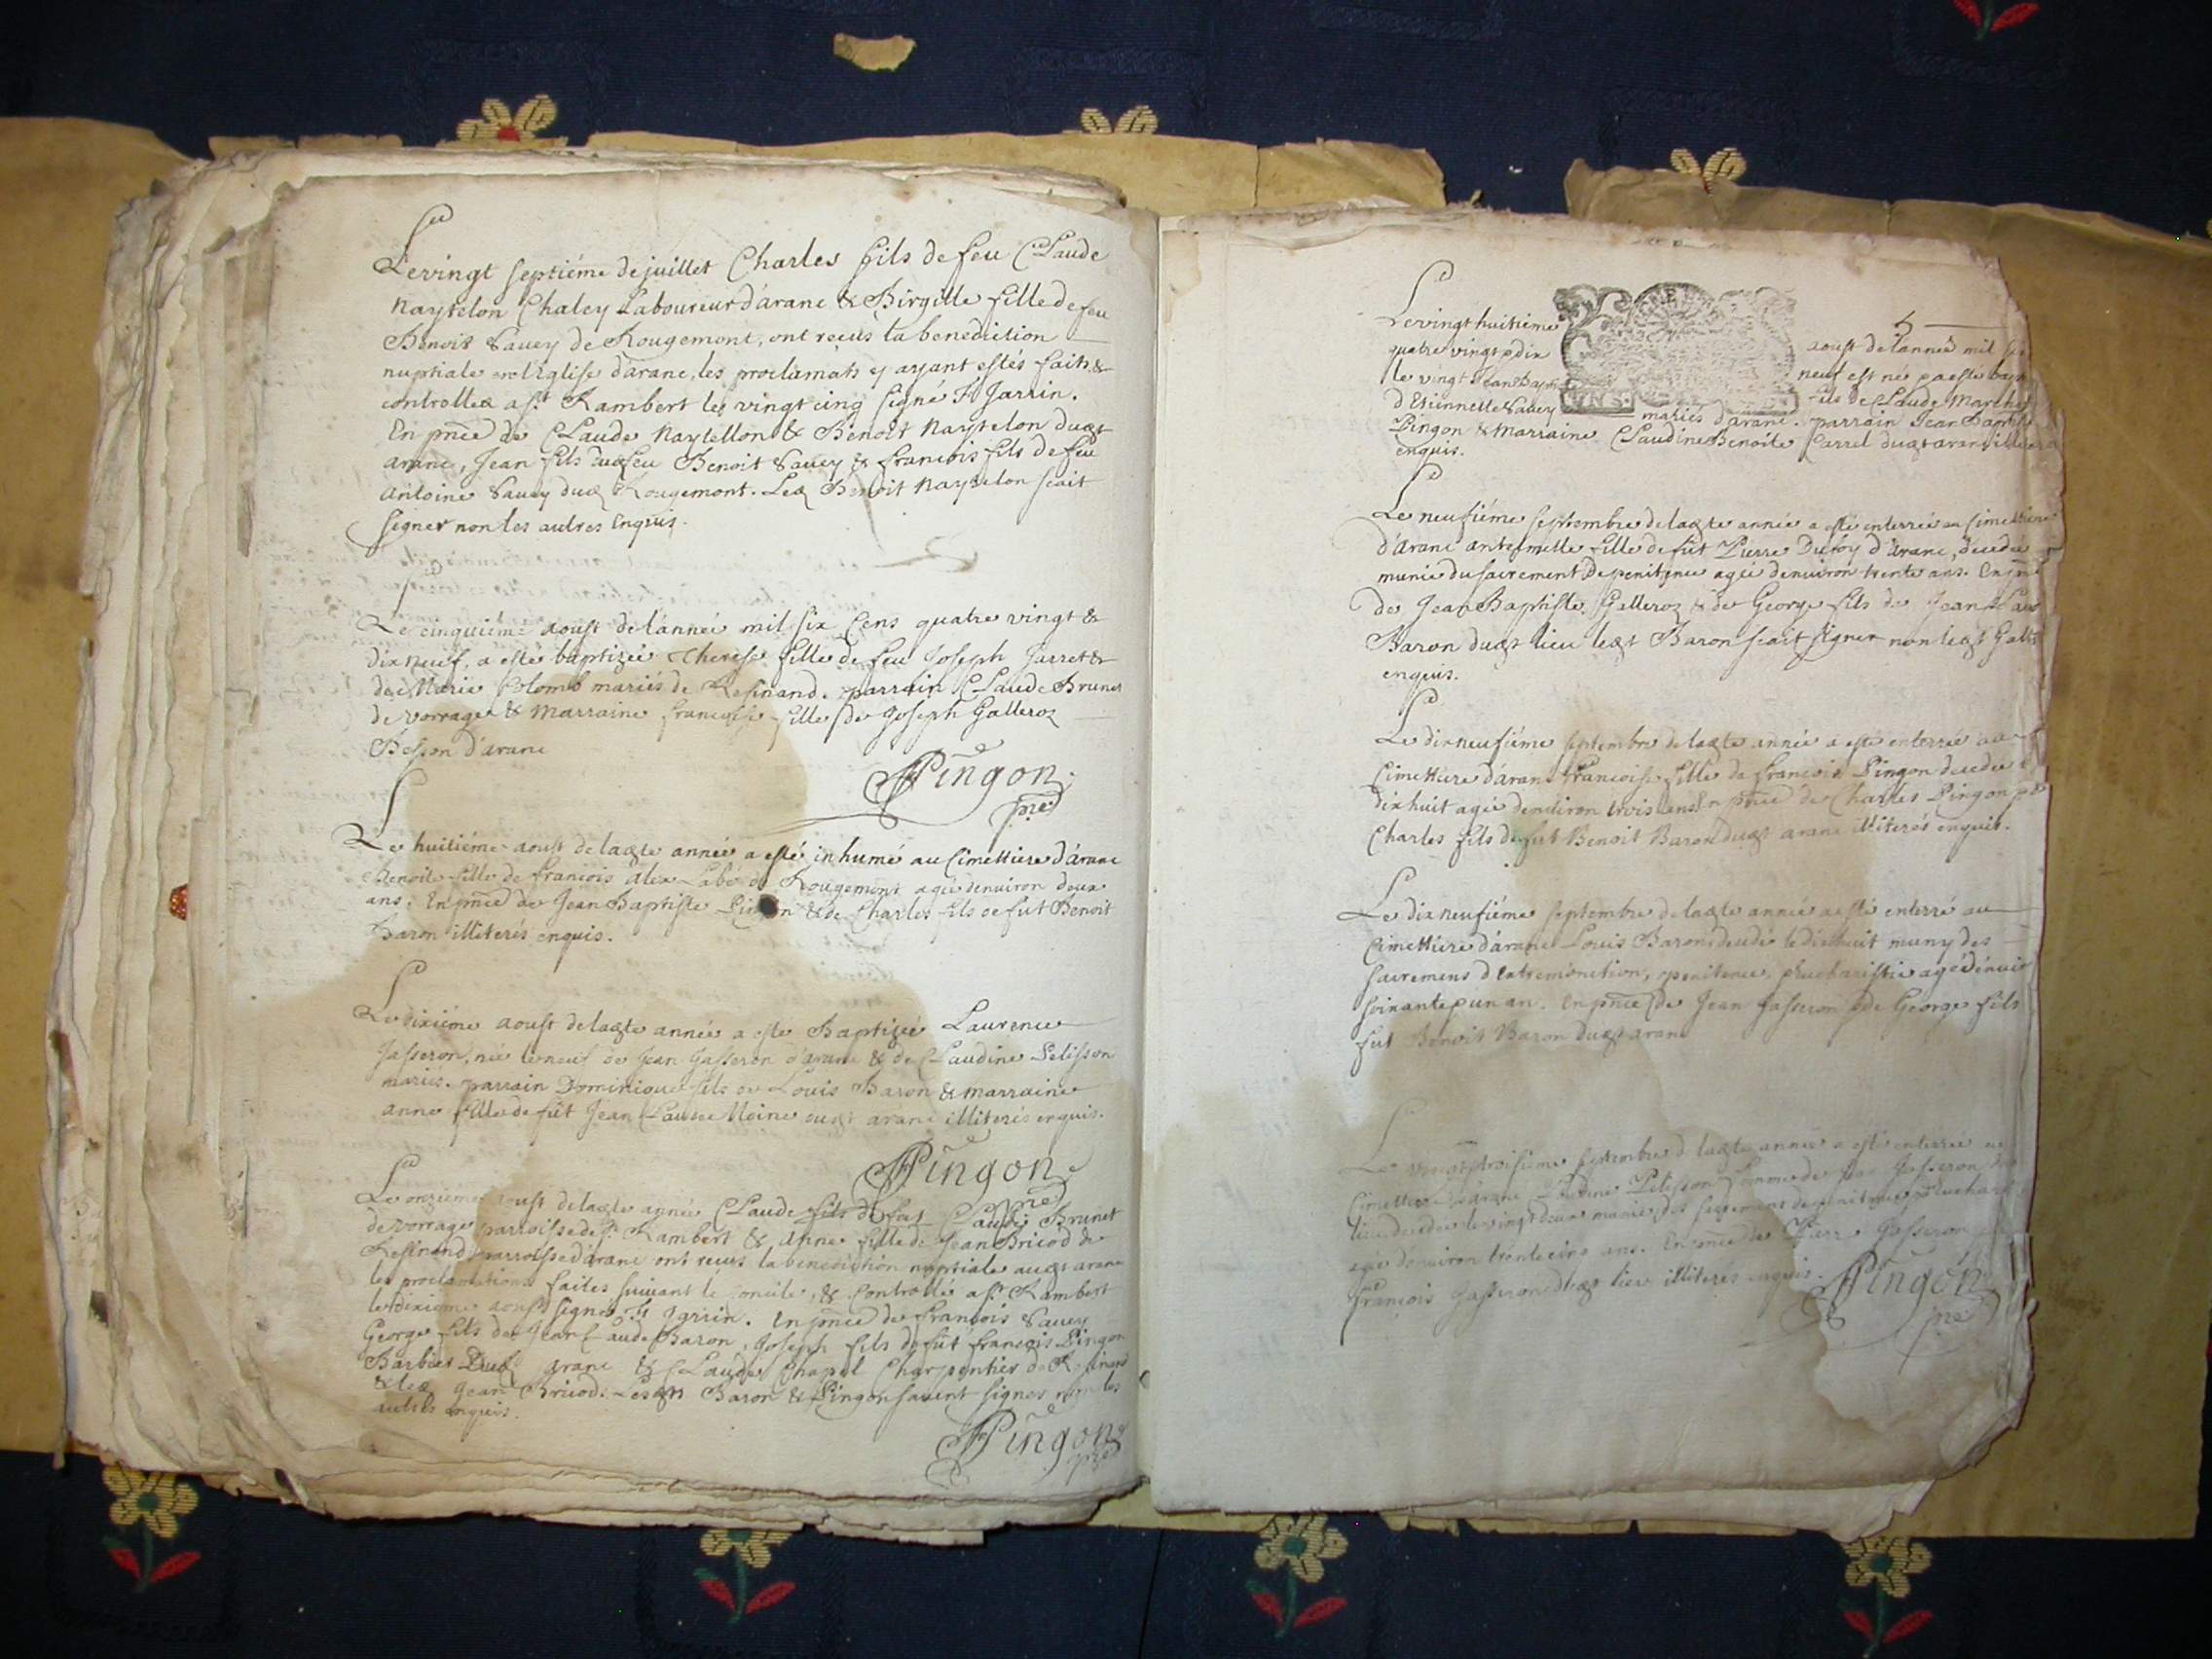 Le vingt septiéme de juillet Charles fils de feu Claude
Naytelon Chaley Laboureur d'arane & Birgille fille de feu
Benoit Savey de Rougemont, ont receus la benediction
nuptiale en l'Eglise d'arane, les proclamats y ayant estés faits &
controllez a St. Rambert le vingt cinq signé Jarrin.
En pnce de Claude Naytellon & Benoit Naytelon dudt
arane, Jean fils de feu Benoit Savey & francois fils de feu
antoine Savey dud Rougemont. Led Benoit Naytelon scait
signer non les autres Enquis.
Le cinquiéme aoust de l'année mil six Cens quatre vingt &
dix neuf, a esté baptizée Therese fille de feu Joseph Jarret &
de Marie Colomb mariés de Resinand. parrain Claude Brunet
de vorrage & Marraine francoise fille de Joseph Galleroz
Besson d'arane
Pingon
pre
Le huitiéme aoust de ladte année a esté inhumé au Cimettiere d'arane
Benoite fille de francois alex Labé de Rougemont agée denuiron deux
ans. En pnce de Jean Baptiste Pingon & de Charles fils de fut Benoit
Baron illiterés enquis.
Le dixiéme aoust de ladte année a esté Baptizée Laurence
Jasseron, née le neuf de Jean Jasseron d'arane & de Claudine Pelisson
mariés. parrain Dominique fils de Louis Baron & marraine
anne fille de fût Jean Claude Moine dudt arane illiterés enquis.
Pingon
pre
Le onziéme aoust de ladte année Claude fils de fut Claude Brunet
de vorrage parroisse de St. Rambert & anne fille de Jean Bricod de
Resinand parroisse d'arane ont receus la benediction nuptiale audt arane
les proclamations faites suivant le concile, & Controllé a St. Rambert
le dixieme aoust signé Jarrin. En pnce de francois Savey
George fils de Jean Claude Baron, Joseph fils de fût francois Pingon
Barbier Dud arane & Claude Chapel Charpentier de Resinand
& led Jean Bricod. Lesdts Baron & Pingon savent signer non les
autres enquis.
Pingon
pre
5
Le vingt huitiéme aoust de l'année mil six
quatre vingt & dix neuf est né & a esté bap
le vingt Jean Bapt fils de Claude Marcha
d'Etiennette Savey mariés d'arane. parrain Jean Baptiste
Pingon & Marraine Claudine Benoite Carrel dudt arane
enquis.
Le neufiéme septembre de ladte année a esté enterrée au Cimettiere
d'arane fille de fût Pierre d'arane, decedée
munie du sacrement De penitence agée denuiron trente ans. En pnce
de Jean Baptiste Galleroz & de George fils de Jean Claude
Baron dudt lieu ledt Baron scait signer non ledt Galle
enquis.
Le dix neufiéme septembre de ladte année a esté enterrée au
Cimettiere d'arane francoise fille de francois Pingon decedée
dix huit agée denuiron trois ans. En pnce de Charles Pingon &
Charles fils de fut Benoit Baron dudt arane illiterés enquis.
Le dix neufiéme septembre de ladte année a esté enterré au
Cimettiere d'arane Louis Baron decedé le dix huit muny des
sacremens d'Extremonction, penitence, & Eucharistie agé denuiron
soixante & un an. En pnce de Jean Jasseron & de George fils
fut Benoit Baron dudt arane
Le vingt troisiéme septembre de ladte année a esté enterrée au
Cimettiere d'arane Claudine Pelisson femme de Jean Jasseron
lieu decedée le vingt deux munie des sacremens de penitence & Euchari
agée denuiron trente cinq ans. En pnce de Pierre Jasseron
francois Jasseron dudt lieu illiterés enquis.
Pingon
pre